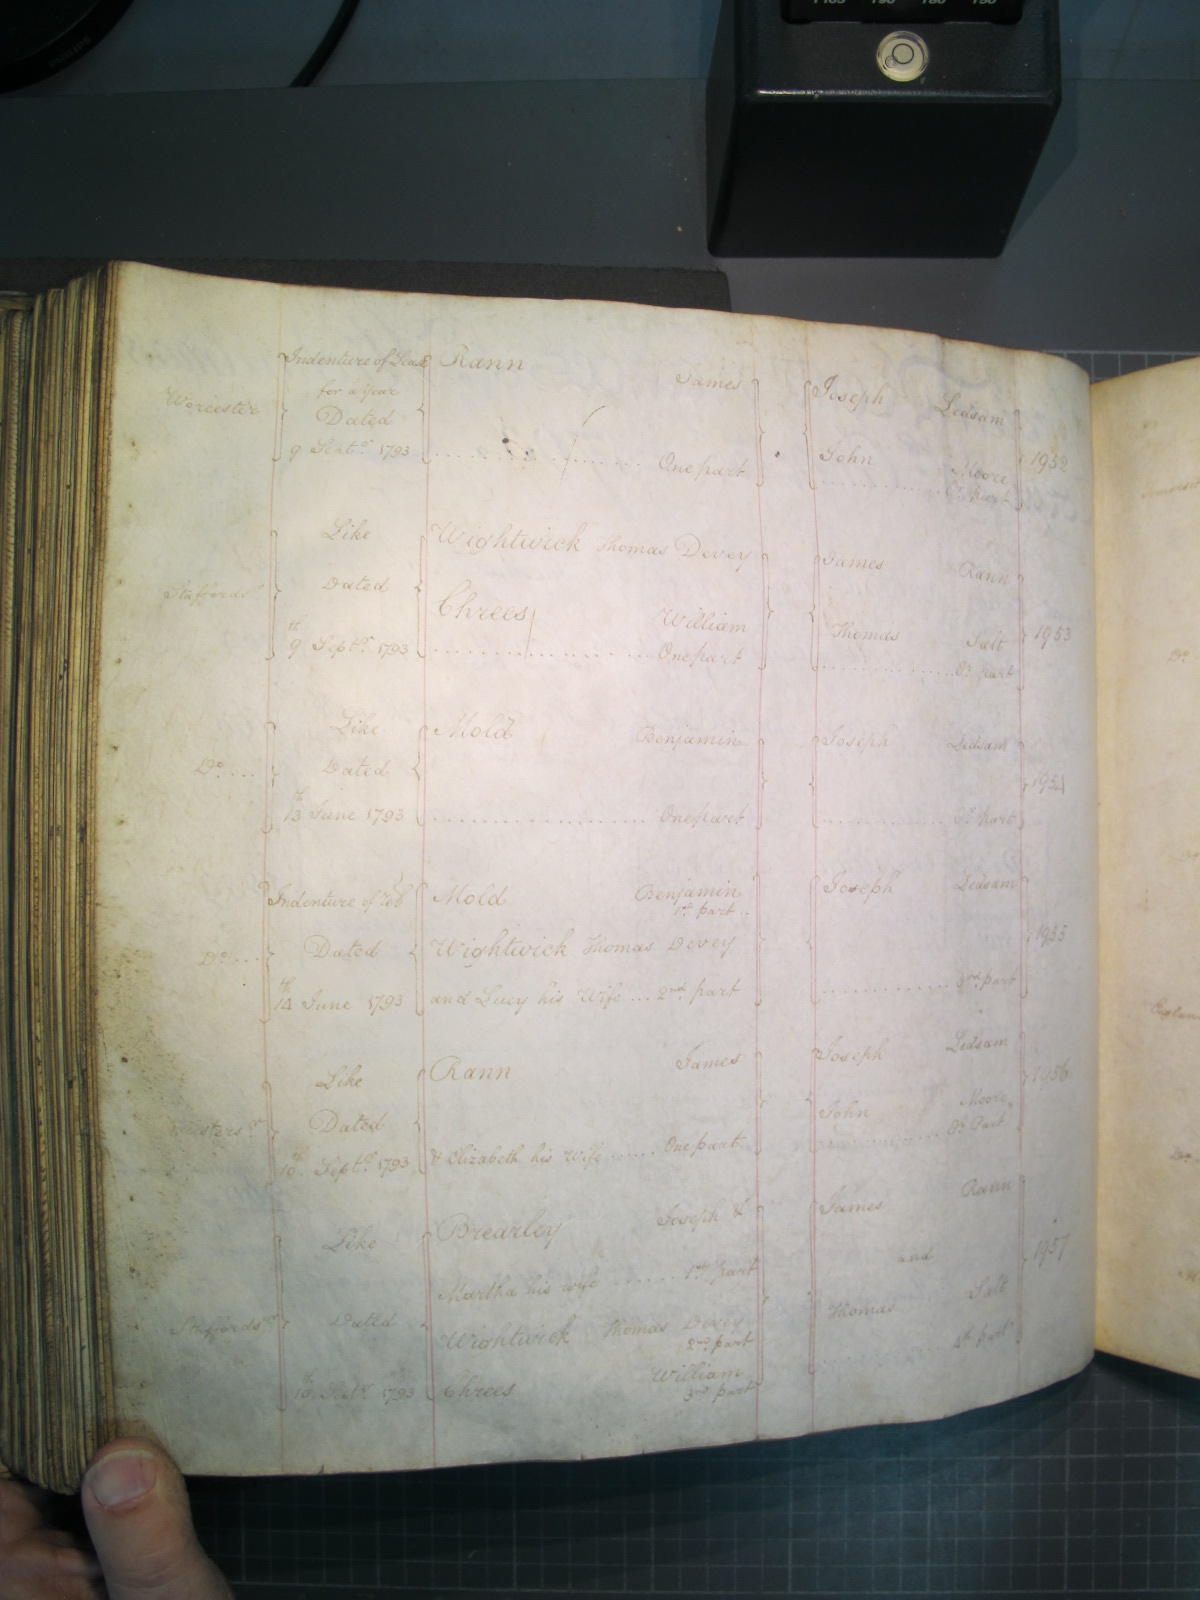 Indenture of Lease Rann
James
Joseph
Ledsam
Worcester
for a Year
Dated
9 Sept.r 1793
One part
John
Moore
1952
Like
Wightwick Thomas Devey
James
Rann
Staffords.
Dated
Threes
William
Thomas
Salt
1953
9th Sept.r 1793
One part
Like
Mold
Benjamin
Joseph
Ledsam
Do ...
Dated
1954
13th June 1793
One part
Indenture of
Mold
Benjamin
1st part
Joseph
Ledsam
Do ...
Dated
Wightwick Thomas Devey
1955
14th June 1793
and Lucy his Wife ... 2nd part
3rd part
Like
Rann
James
Joseph
Ledsam
1956
Dated
John
Moore
10th Sept.r 1793
& Elizabeth his wife ...... One part
Like
Brearley
Joseph &
James
Rann
and
1957
Martha his wife ...... 1st part
Staffords.
Dated
Wightwick
Thomas Devey
2nd part
Thomas
Salt
4th part
10th Sept.r 1793
Threes
William
3rd part